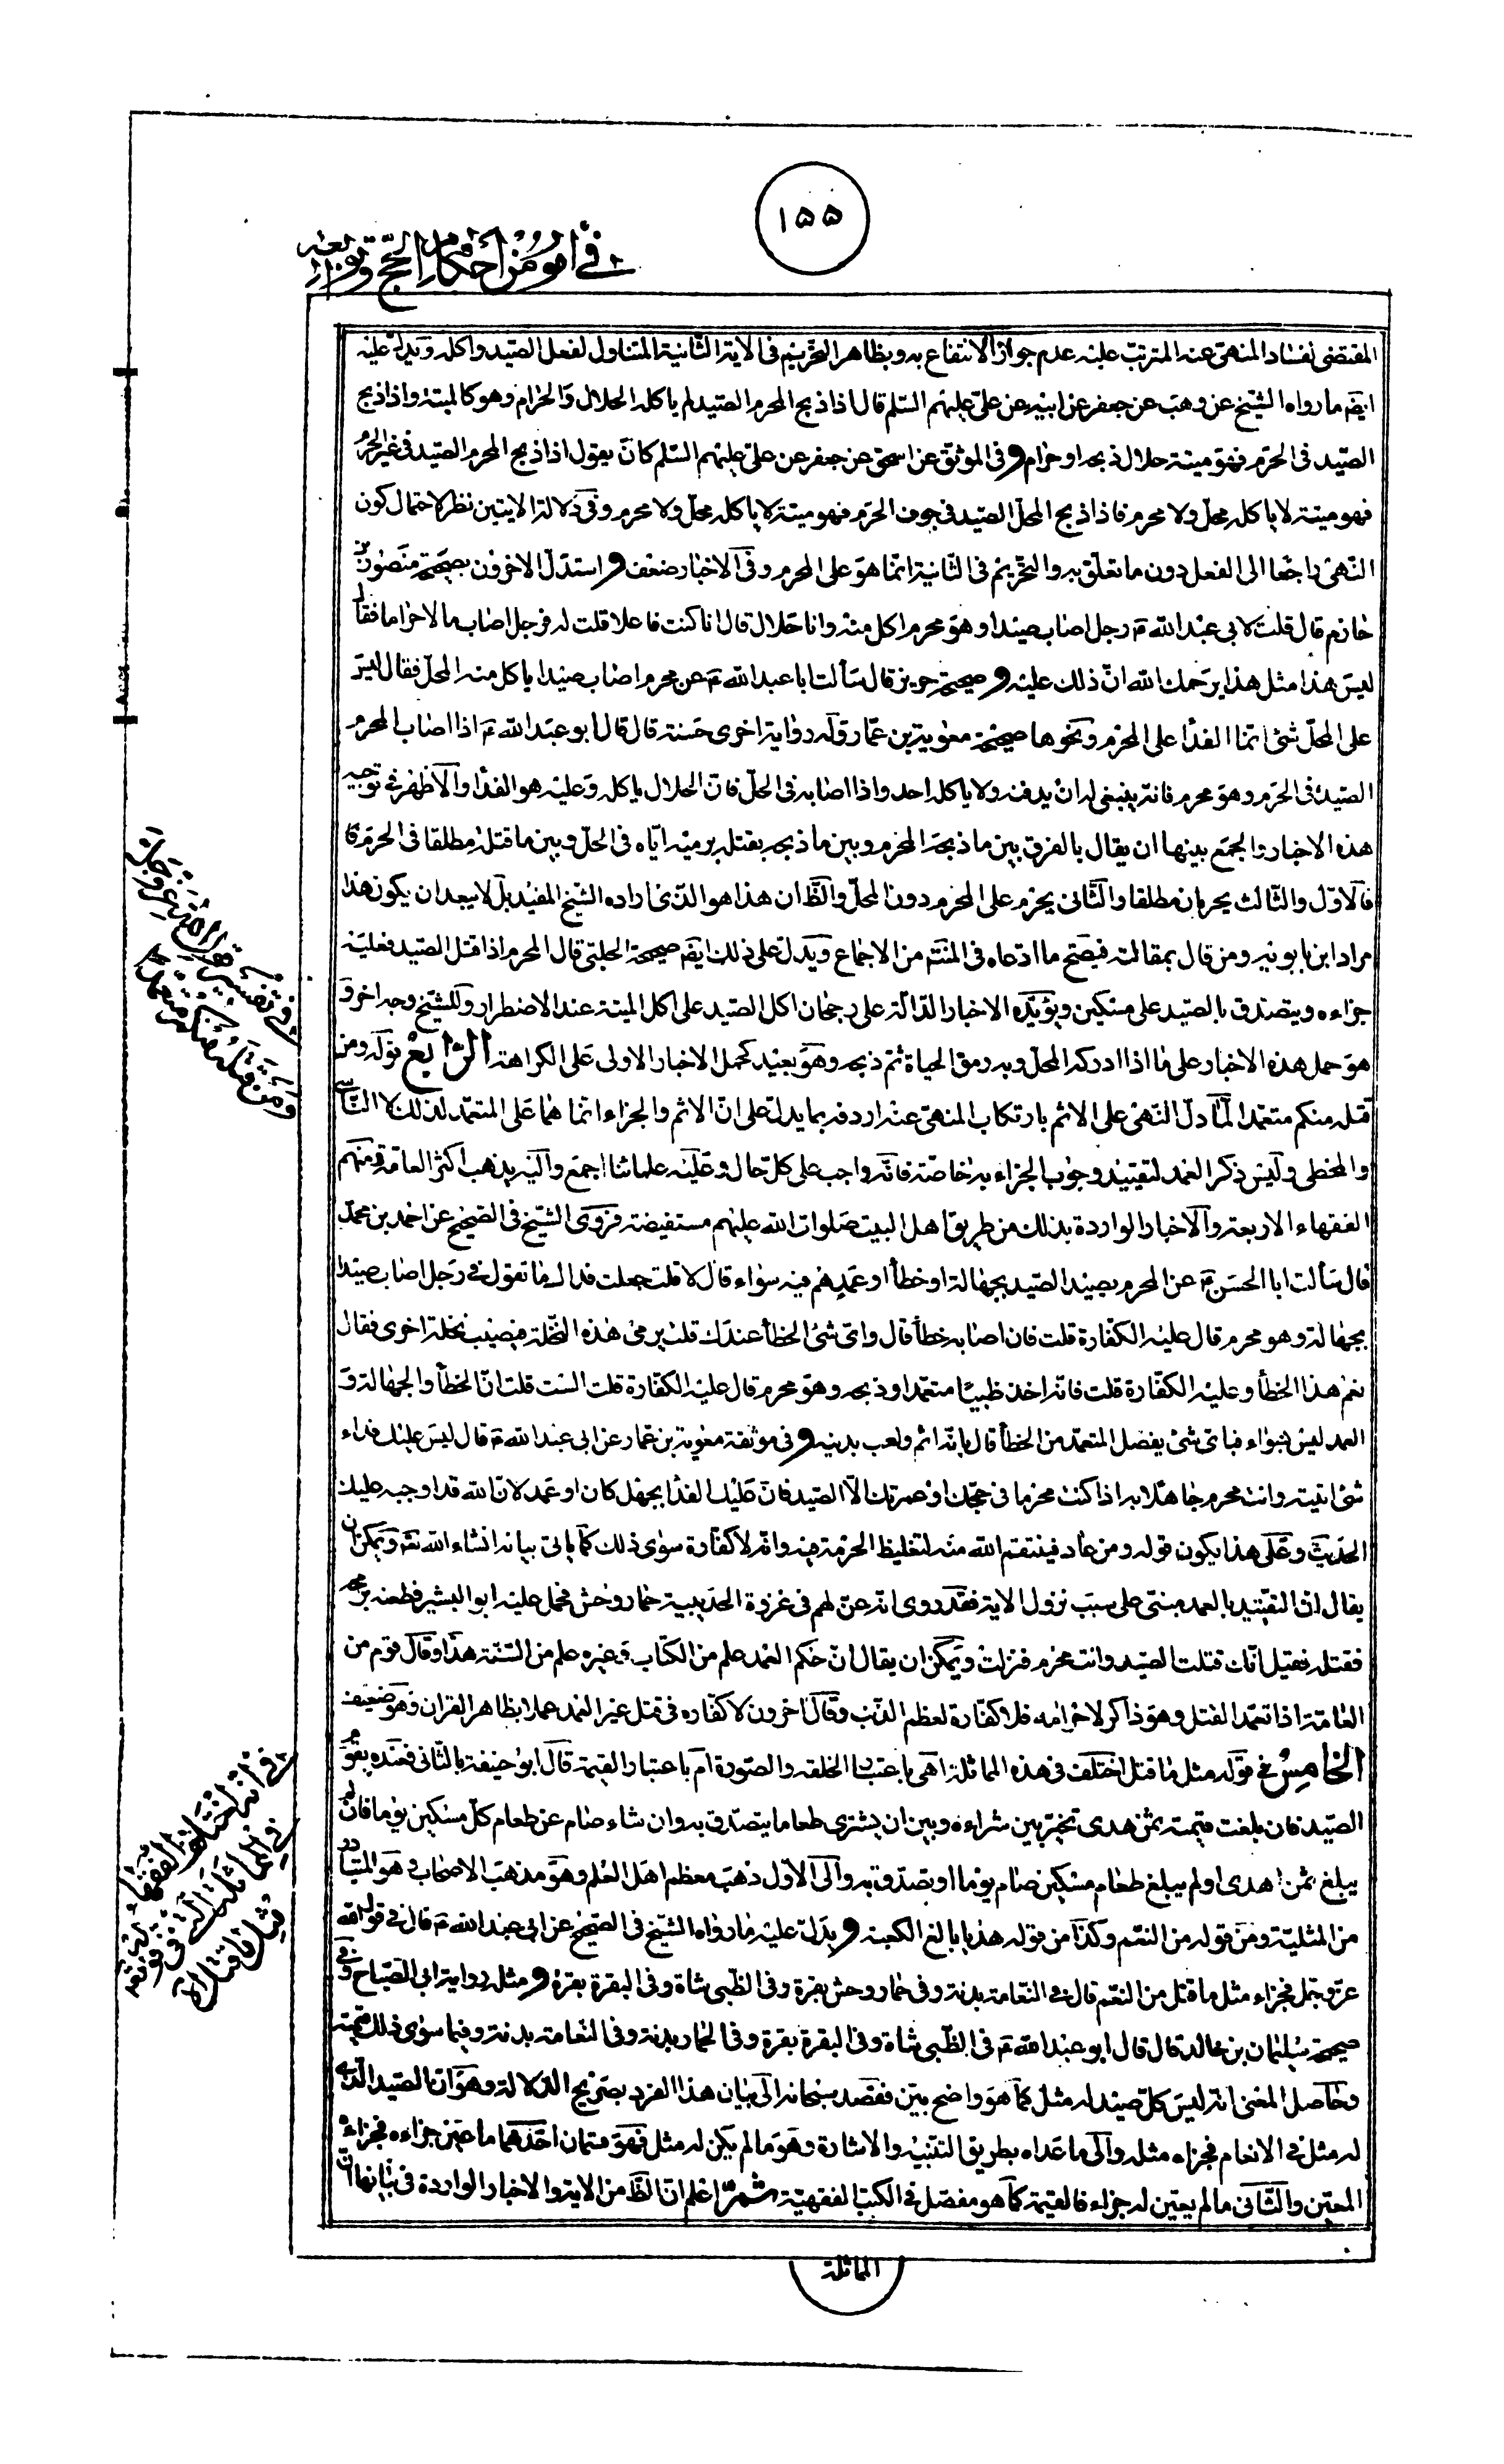 ١٥٥
في أمور من أحكام الحجّ وتوابعه
المقتضى لفساد المنهىّ عنه المترتّب عليه عدم جواز الانتفاع به وبظاهر التحريم فى الاية الثّانية المتناول لفعل الصّيد واكله ويدلّ عليه
ايضا ما رواه الشّيخ عن وهب عن جعفر عن ابيه عن علىّ عليهم السّلم قال اذا ذبح المحرم الصّيد لم ياكله الحلال والحرام وهو كالميتة واذا ذبح
الصّيد فى الحرم فهو ميتة حلال ذبحه او حرام و فى الموثّق عن اسحق عن جعفر عن علىّ عليهم السّلم كان يقول اذا ذبح المحرم الصّيد فى غير الحرم
فهو ميتة لا ياكله محلّ ولا محرم فاذا ذبح المحلّ الصّيد فى جوف الحرم فهو ميتة لا ياكله محلّ ولا محرم وفى دلالة الايتين نظر لاحتمال كون
النّهى راجعا الى الفعل دون ما تعلّق به والتّحريم فى الثّانية انّما هو على المحرم وفى الاخبار ضعف و استدلّ الاخرون بصحيحة منصور بن
حازم قال قلت لابى عبد الله ع رجل اصاب صيدا وهو محرم اكل منه وانا حلال قال انا كنت فاعلا قلت له فرجل اصاب مالا حراما فقال
ليس هذا مثل هذا يرحمك الله انّ ذلك عليه و صحيحة حريز قال سألت ابا عبد الله ع عن محرم اصاب صيدا ياكل منه المحلّ فقال ليس
على المحلّ شئ انّما الفدا على المحرم ونحوها صحيحة معوية بن عمّار وله رواية اخرى حسنة قال قال ابو عبد الله ع اذا اصاب المحرم
الصّيد فى الحرم وهو محرم فانّه ينبغى له ان يدفنه ولا ياكله احد واذا اصابه فى الحلّ فان الحلال ياكله وعليه هو الفدا والاظهر فى توجيه
هذه الاخبار والجمع بينها ان يقال بالفرق بين ما ذبحه المحرم وبين ما ذبحه بقتله برميه ايّاه فى الحلّ وبين ما قتله مطلقا فى الحرم
فالاوّل والثّالث يحرمان مطلقا والثّانى يحرم على المحرم دون المحلّ والظّ ان هذا هو الّذى اراده الشّيخ المفيد بل لا يبعد ان يكون هذا
مراد ابن بابويه ومن قال بمقالته فيصحّ ما ادّعاه فى المنتهى من الاجماع ويدلّ على ذلك ايضا صحيحة الحلبىّ قال المحرم اذا قتل الصّيد فعليه
جزاءه ويتصدق بالصّيد على مسكين ويؤيّده الاخبار الدّالّة على رجحان اكل الصّيد على اكل الميتة عند الاضطرار وللشّيخ وجه اخر و
هو حمل هذه الاخبار على ما اذا ادركه المحلّ وبه رمق الحياة ثم ذبحه وهو بعيد كحمل الاخبار الاولى على الكراهة الرّابع قوله ومن
قتله منكم متعمّدا لمّا دلّ النّهى على الاثم بارتكاب المنهىّ عنه اردفه بما يدلّ على انّ الاثم والجزاء انّما هما على المتعمّد لذلك لا النّاسى
والمخطى وليس ذكر العمد لتقييد وجوب الجزاء به خاصّة فانّه واجب على كلّ حال وعليه علمائنا اجمع واليه يذهب اكثر العامّة ومنهم
الفقهاء الاربعة والاخبار الواردة بذلك من طريق اهل البيت صلوات الله عليهم مستفيضة فروى الشّيخ فى الصّحيح عن احمد بن محمّد
قال سألت ابا الحسن ع عن المحرم يصيد الصّيد بجهالة او خطأ او عمد هم فيه سواء قال لا قلت جعلت فداك فما تقول فى رجل اصاب صيدا
بجهالة وهو محرم قال عليه الكفّارة قلت فان اصابه خطأ قال واىّ شئ الخطأ عندك قلت يرمى هذه النّخلة فيصيب نخلة اخرى فقال
نعم هذا الخطأ وعليه الكفّارة قلت فانّه اخذ ظبيا متعمّدا وذبحه وهو محرم قال عليه الكفّارة قلت الست قلت انّ الخطأ والجهالة و
العمد ليس بسواء فباىّ شئ يفضل المتعمّد من الخطأ قال بانّه اثم ولعب بدينه و فى موثقة معوية بن عمّار عن ابى عبد الله ع قال ليس عليك فداء
شئ اتيته وانت محرم جاهلا به اذا كنت محرما فى حجّك او عمرتك الّا الصّيد فانّ عليك الفدا بجهل كان او عمد لانّ الله قد اوجبه عليك
الحديث وعلى هذا يكون قوله ومن عاد فينتقم الله منه لتغليظ الحرمة فيه وانّه لا كفّارة سوى ذلك كما ياتى بيانه انشاء الله تع ويمكن ان
يقال انّ التقييد بالعمد مبنىّ على سبب نزول الاية فقد روى انّه عنّ لهم فى غزوة الحديبية حمار وحش فحمل عليه ابو البشير فطعنه برمحه
فقتله فقيل انّك قتلت الصّيد وانت محرم فنزلت ويمكن ان يقال انّ حكم العمد علم من الكتاب وغيره علم من السّنّة هذا وقال قوم من
العامّة اذا تعمّد القتل وهو ذاكر لاحرامه فلا كفّارة لعظم الذّنب وقال اخرون لا كفّاره فى قتل غير العمد عملا بظاهر القران وهو ضعيف
الخامس فى قوله مثل ما قتل اختلف فى هذه المماثلة اهى باعتبار الخلقه والصّورة ام باعتبار القيمة قال ابو حنيفة بالثّانى فعنده يقوّم
الصّيد فان بلغت قيمته ثمن هدى تخيّر بين شراءه وبين ان يشترى طعاما يتصدّق به وان شاء صام عن طعام كلّ مسكين يوما فان لم
يبلغ ثمن هدى او لم يبلغ طعام مسكين صام يوما او تصدّق به والى الاوّل ذهب معظم اهل العلم وهو مذهب الاصحاب وهو المتبادر
من المثليّة ومن قوله من النّعم وكذا من قوله هديا بالغ الكعبة و يدلّ عليه ما رواه الشّيخ فى الصّحيح عن ابى عبد الله ع قال فى قول الله
عزّ وجلّ فجزاء مثل ما قتل من النّعم قال فى النّعامة بدنة وفى حمار وحش بقرة وفى الظّبى شاة وفى البقرة بقرة و مثله رواية ابى الصّباح وفى
صحيحة سليمان بن خالد قال قال ابو عبد الله ع فى الظّبى شاة وفى البقرة بقرة وفى الحمار بدنة وفى النّعامة بدنة وفيما سوى ذلك قيمته
وحاصل المعنى انّه ليس كلّ صيد له مثل كما هو واضح بيّن فقصد سبحانه الى بيان هذا الفرد بصريح الدّلالة وهو انّ الصّيد الّذى
له مثل فى الانعام فجزاءه مثله والى ما عداه بطريق التّنبيه والاشارة وهو ما لم يكن له مثل فهو قسمان احدهما ما عيّن جزاءه فجزاءه
المعيّن والثّانى ما لم يعيّن له جزاء فالقيمة كما هو مفصّل فى الكتب الفقهيّة ثمّ اعلم انّ الظّ من الاية والاخبار الواردة فى بيانها انّ
المماثلة
في تفسير قوله عزّ وجلّ
ومن قتله منكم متعمّدا
في انّه اختلف الفقهاء
في المماثلة الّتى في قوله
مثل ما قتل